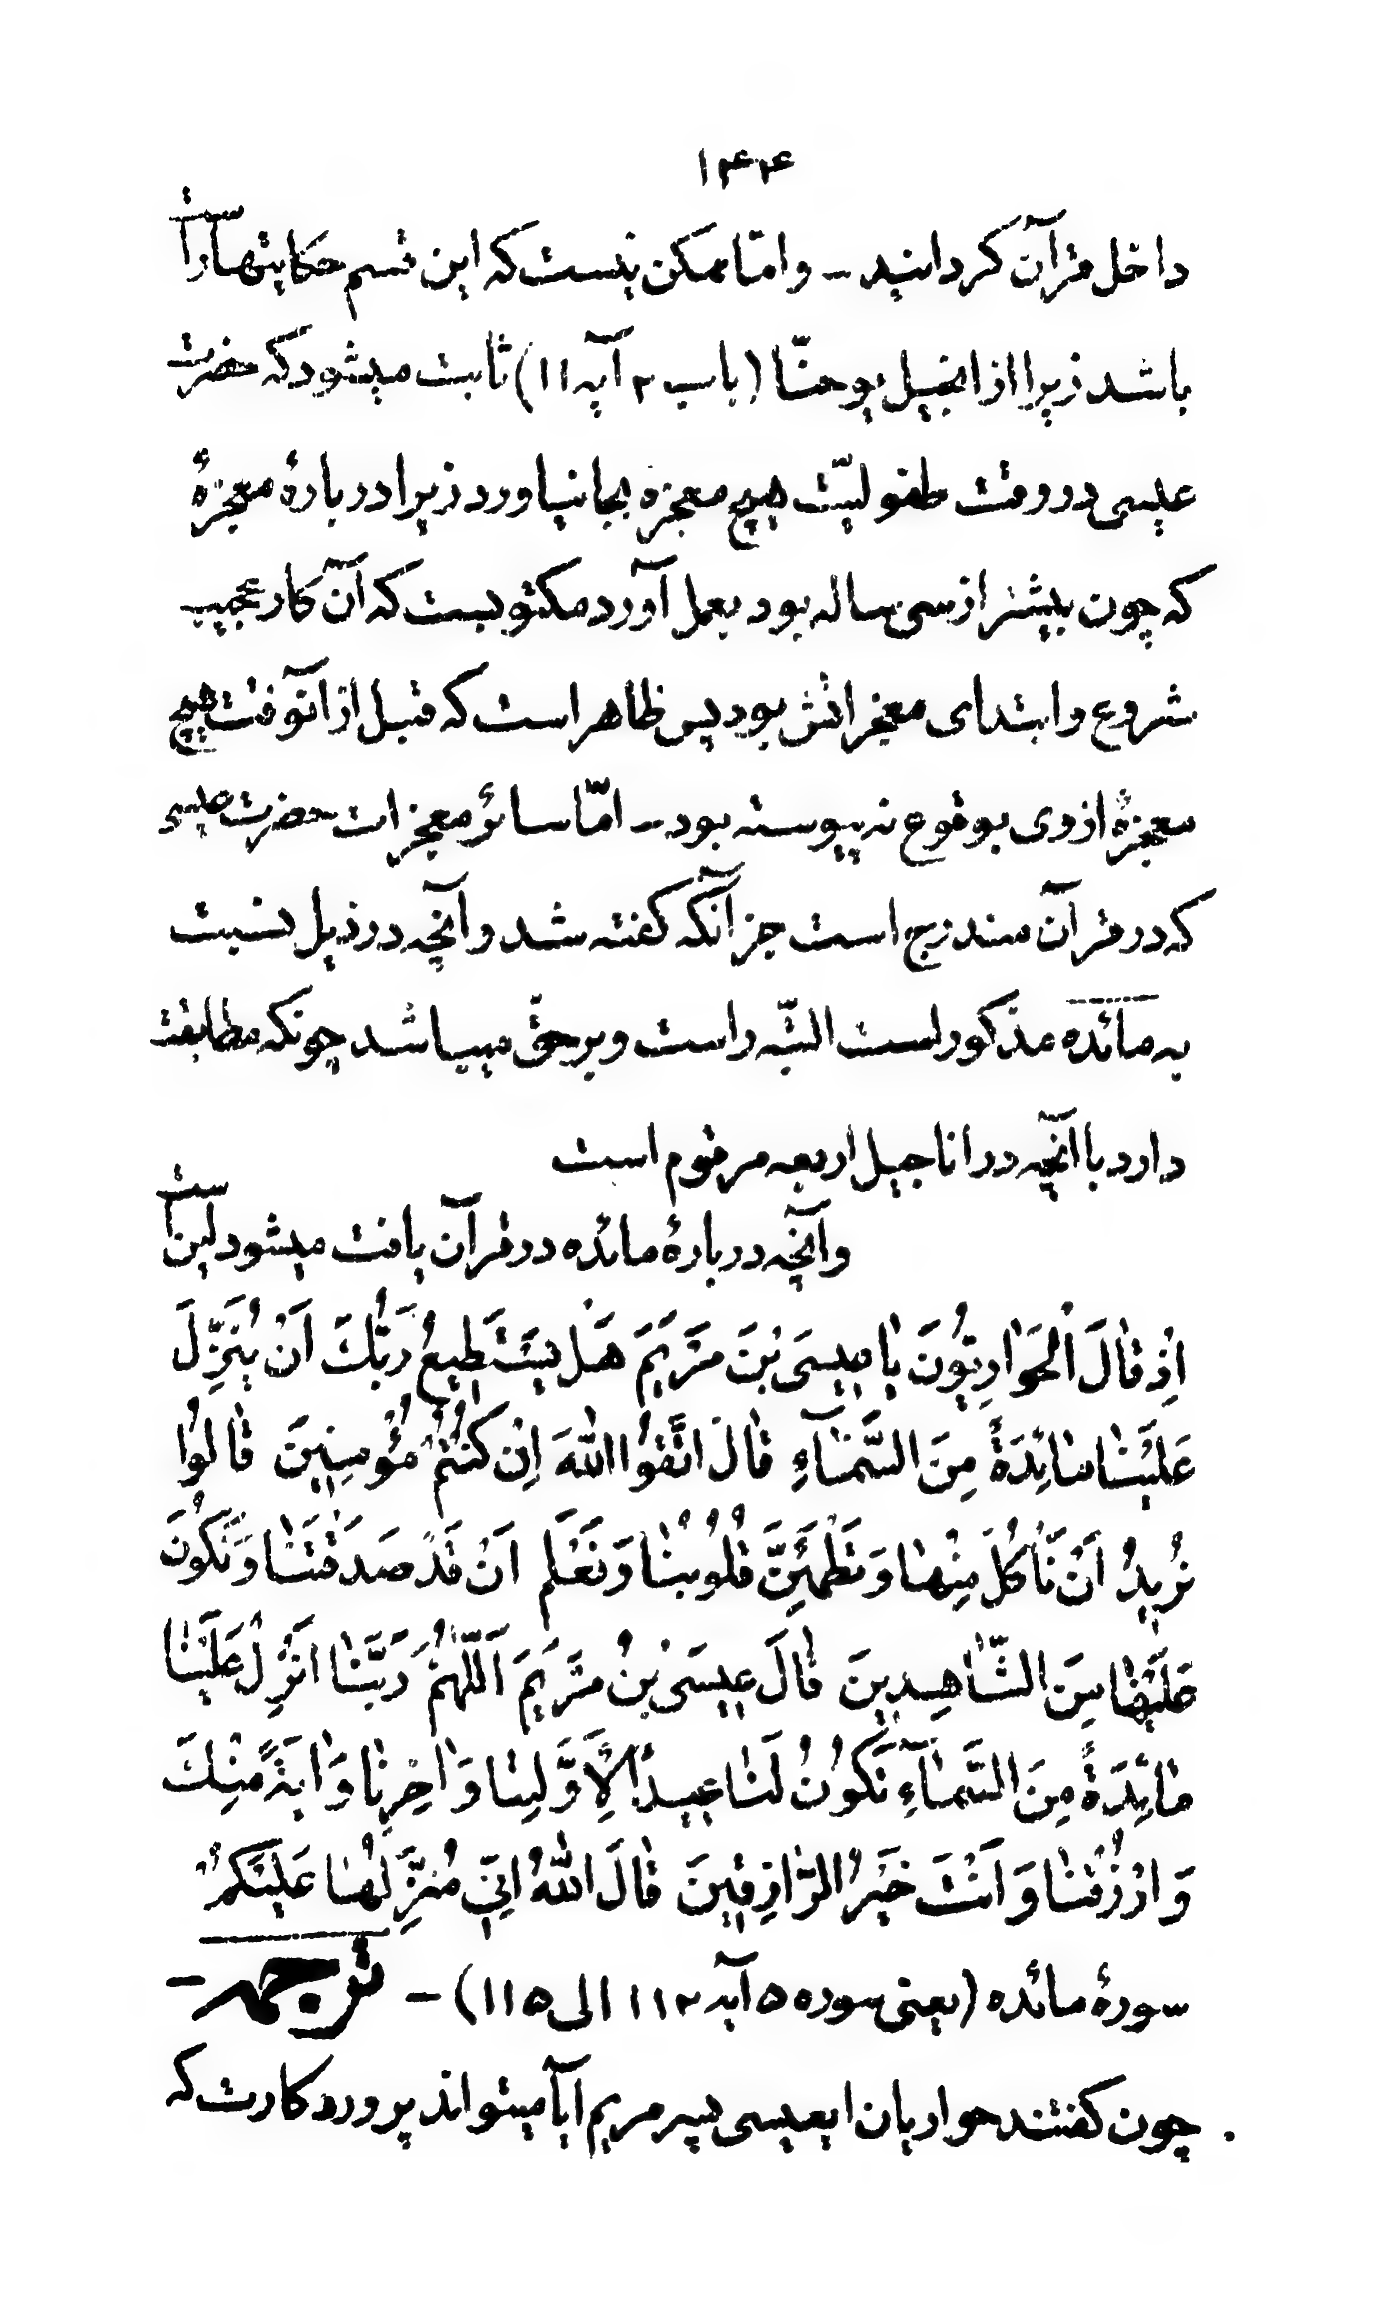 ۱۴۴
داخل قرآن گردانید ـ وامّا ممکن نیست که این قسم حکایتها راست
باشد زیرا از انجیل یوحنّا (باب ۲ آیه ۱۱) ثابت میشود که حضرت
عیسی در وقت طفولیّت هیچ معجزه بجا نیاورد زیرا در بارهٔ معجزهٔ
که چون بیشتر از سی ساله بود بعمل آورد مکتوبست که آن کار عجیب
شروع و ابتدای معجزاتش بود پس ظاهر است که قبل از آنوقت هیچ
معجزهٔ از وی بوقوع نه پیوسته بود ـ امّا سائر معجزات حضرت عیسی
که در قرآن مندرج است جز آنکه گفته شد و آنچه در ذیل نسبت
به مائده مذکور است البتّه راست و بر حقّ میباشد چونکه مطابقت
دارد با آنچه در اناجیل اربعه مرقوم است
و آنچه در بارهٔ مائده در قرآن یافت میشود اینست
اِذْ قٰالَ الْحَوٰارِیُّونَ یٰا عِیسَی بْنَ مَرْیَمَ هَلْ یَسْتَطِیعُ رَبُّكَ اَنْ یُنَزِّلَ
عَلَیْنٰا مٰائِدَةً مِنَ السَّمٰآءِ قٰالَ اتَّقُوا اللّٰهَ اِنْ كُنْتُمْ مُؤْمِنِینَ قٰالُوا
نُرِیدُ اَنْ نَأْكُلَ مِنْهٰا وَ تَطْمَئِنَّ قُلُوبُنٰا وَ نَعْلَمَ اَنْ قَدْ صَدَقْتَنٰا وَ نَكُونَ
عَلَیْهٰا مِنَ الشّٰاهِدِینَ قٰالَ عِیسَی بْنُ مَرْیَمَ اَللّٰهُمَّ رَبَّنٰا اَنْزِلْ عَلَیْنٰا
مٰائِدَةً مِنَ السَّمٰآءِ تَكُونُ لَنٰا عِیدًا لِاَوَّلِنٰا وَ اٰخِرِنٰا وَ اٰیَةً مِنْكَ
وَ ارْزُقْنٰا وَ اَنْتَ خَیْرُ الرّٰازِقِینَ قٰالَ اللّٰهُ اِنِّی مُنَزِّلُهٰا عَلَیْكُمْ
سورهٔ مائده (یعنی سوره ۵ آیه ۱۱۲ الی ۱۱۵) ـ ترجمه ـ
چون گفتند حواریان ایعیسی پسر مریم آیا میتواند پروردگارت که